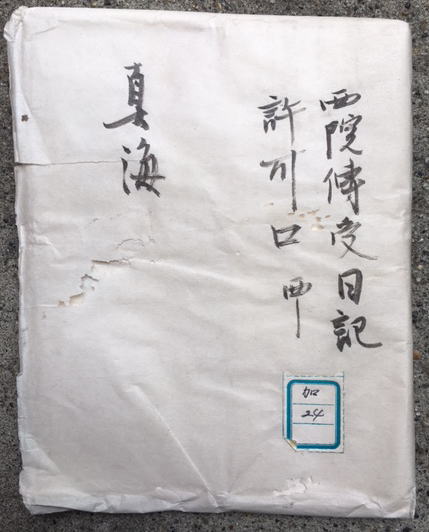 西院傳受日記
許可口 西
真海
加
24